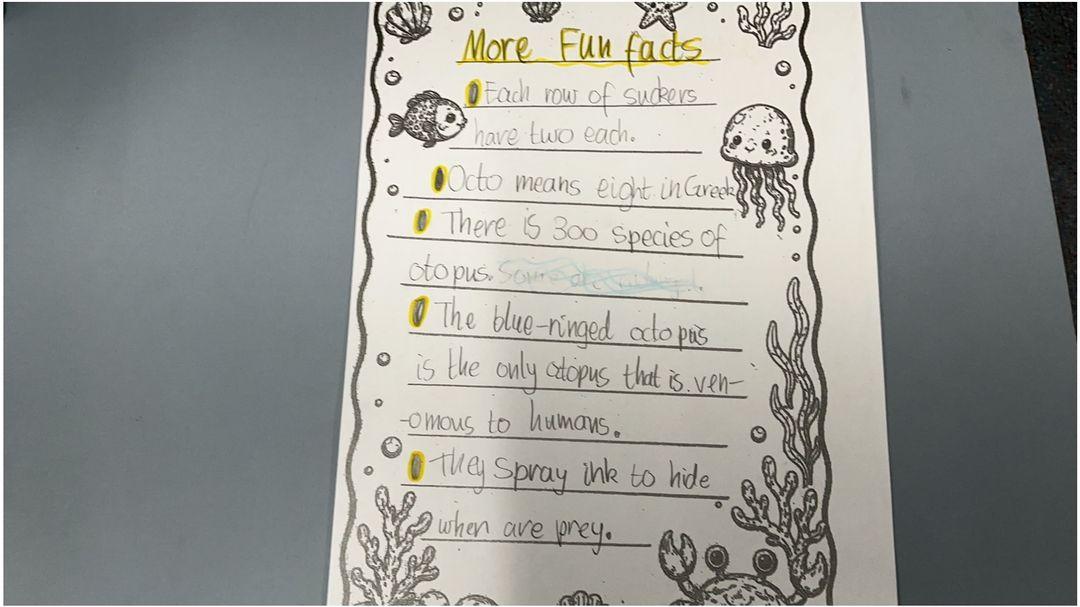 More Fun facts
Each row of suckers
have two each.
Octo means eight in Greek
There is 300 species of
otopus.
The blue-ringed octopus
is the only otopus that is ven-
-omous to humans.
They spray ink to hide
when are prey.